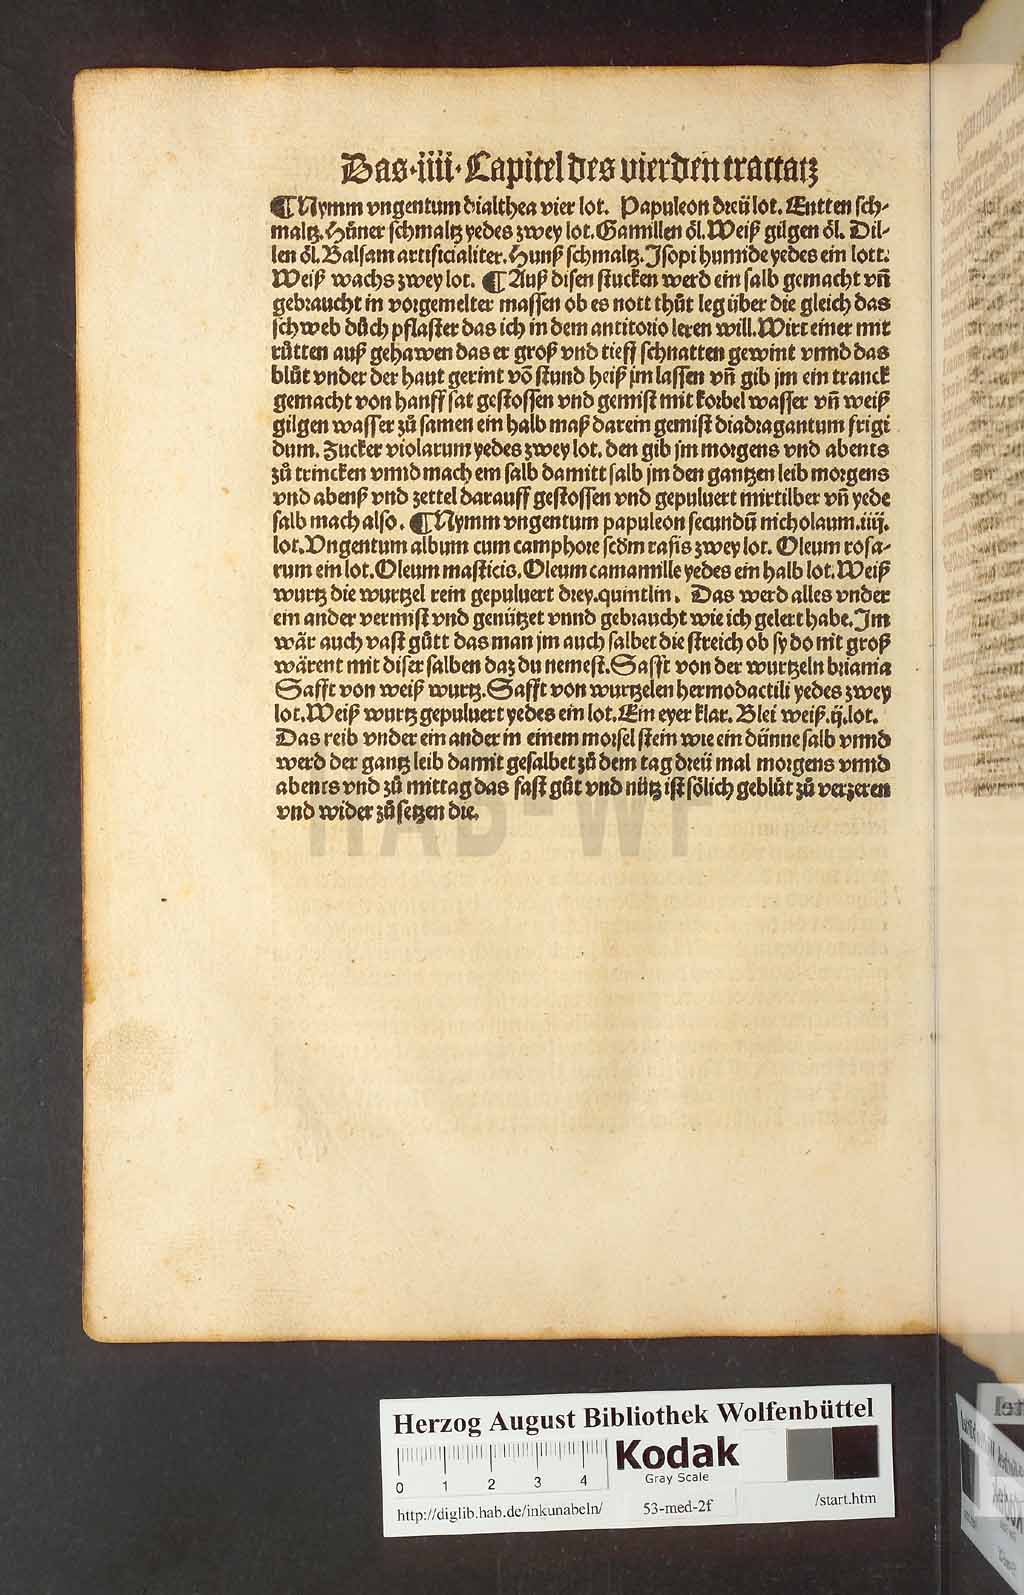 Das·iiii·Capitel des vierden tractatz
¶Nymm vngentum dialthea vier lot. Papuleon dreü lot. Entten sch-
maltz. Hůner schmaltz yedes zwey lot. Gamillen öl. Weiß gilgen öl. Dil-
len öl. Balsam artificialiter. Hunß schmaltz. Isopi humide yedes ein lott.
Weiß wachs zwey lot. ¶Auß disen stucken werd ein salb gemacht vñ
gebraucht in vorgemelter massen ob es nott thůt leg über die gleich das
schweb důch pflaster das ich in dem antitorio leren will. Wirt einer mit
růtten auß gehawen das er groß vnd tieff schnatten gewint vnnd das
blůt vnder der haut gerint võ stund heiß jm lassen vñ gib jm ein tranck
gemacht von hanff sat gestossen vnd gemist mit korbel wasser vñ weiß
gilgen wasser zů samen ein halb maß darein gemist diadragantum frigi
dum. Zucker violarum yedes zwey lot. den gib jm morgens vnd abents
zů trincken vnnd mach ein salb damitt salb jm den gantzen leib morgens
vnd abenß vnd zettel darauff gestossen vnd gepuluert mirtilber vñ yede
salb mach also. ¶Nymm vngentum papuleon secundū nicholaum.iiij.
lot. Vngentum album cum camphore scdm rasis zwey lot. Oleum rosa-
rum ein lot. Oleum masticis. Oleum camamille yedes ein halb lot. Weiß
wurtz die wurtzel rein gepuluert drey. quintlin. Das werd alles vnder
ein ander vermist vnd genützet vnnd gebraucht wie ich gelert habe. Im
wär auch vast gůtt das man jm auch salbet die streich ob sy do mit groß
wärent mit diser salben daz du nemest. Safft von der wurtzeln briania
Safft von weiß wurtz. Safft von wurtzelen hermodactili yedes zwey
lot. Weiß wurtz gepuluert yedes ein lot. Ein eyer klar. Blei weiß.ij.lot.
Das reib vnder ein ander in einem morsel stein wie ein dünne salb vnnd
werd der gantz leib damit gesalbet zů dem tag dreü mal morgens vnnd
abents vnd zů mittag das fast gůt vnd nütz ist sölich geblůt zů verzeren
vnd wider zů setzen die.
HAB-WF
Herzog August Bibliothek Wolfenbüttel
Kodak
Gray Scale
0 1 2 3 4
http://diglib.hab.de/inkunabeln/ 53-med-2f /start.htm